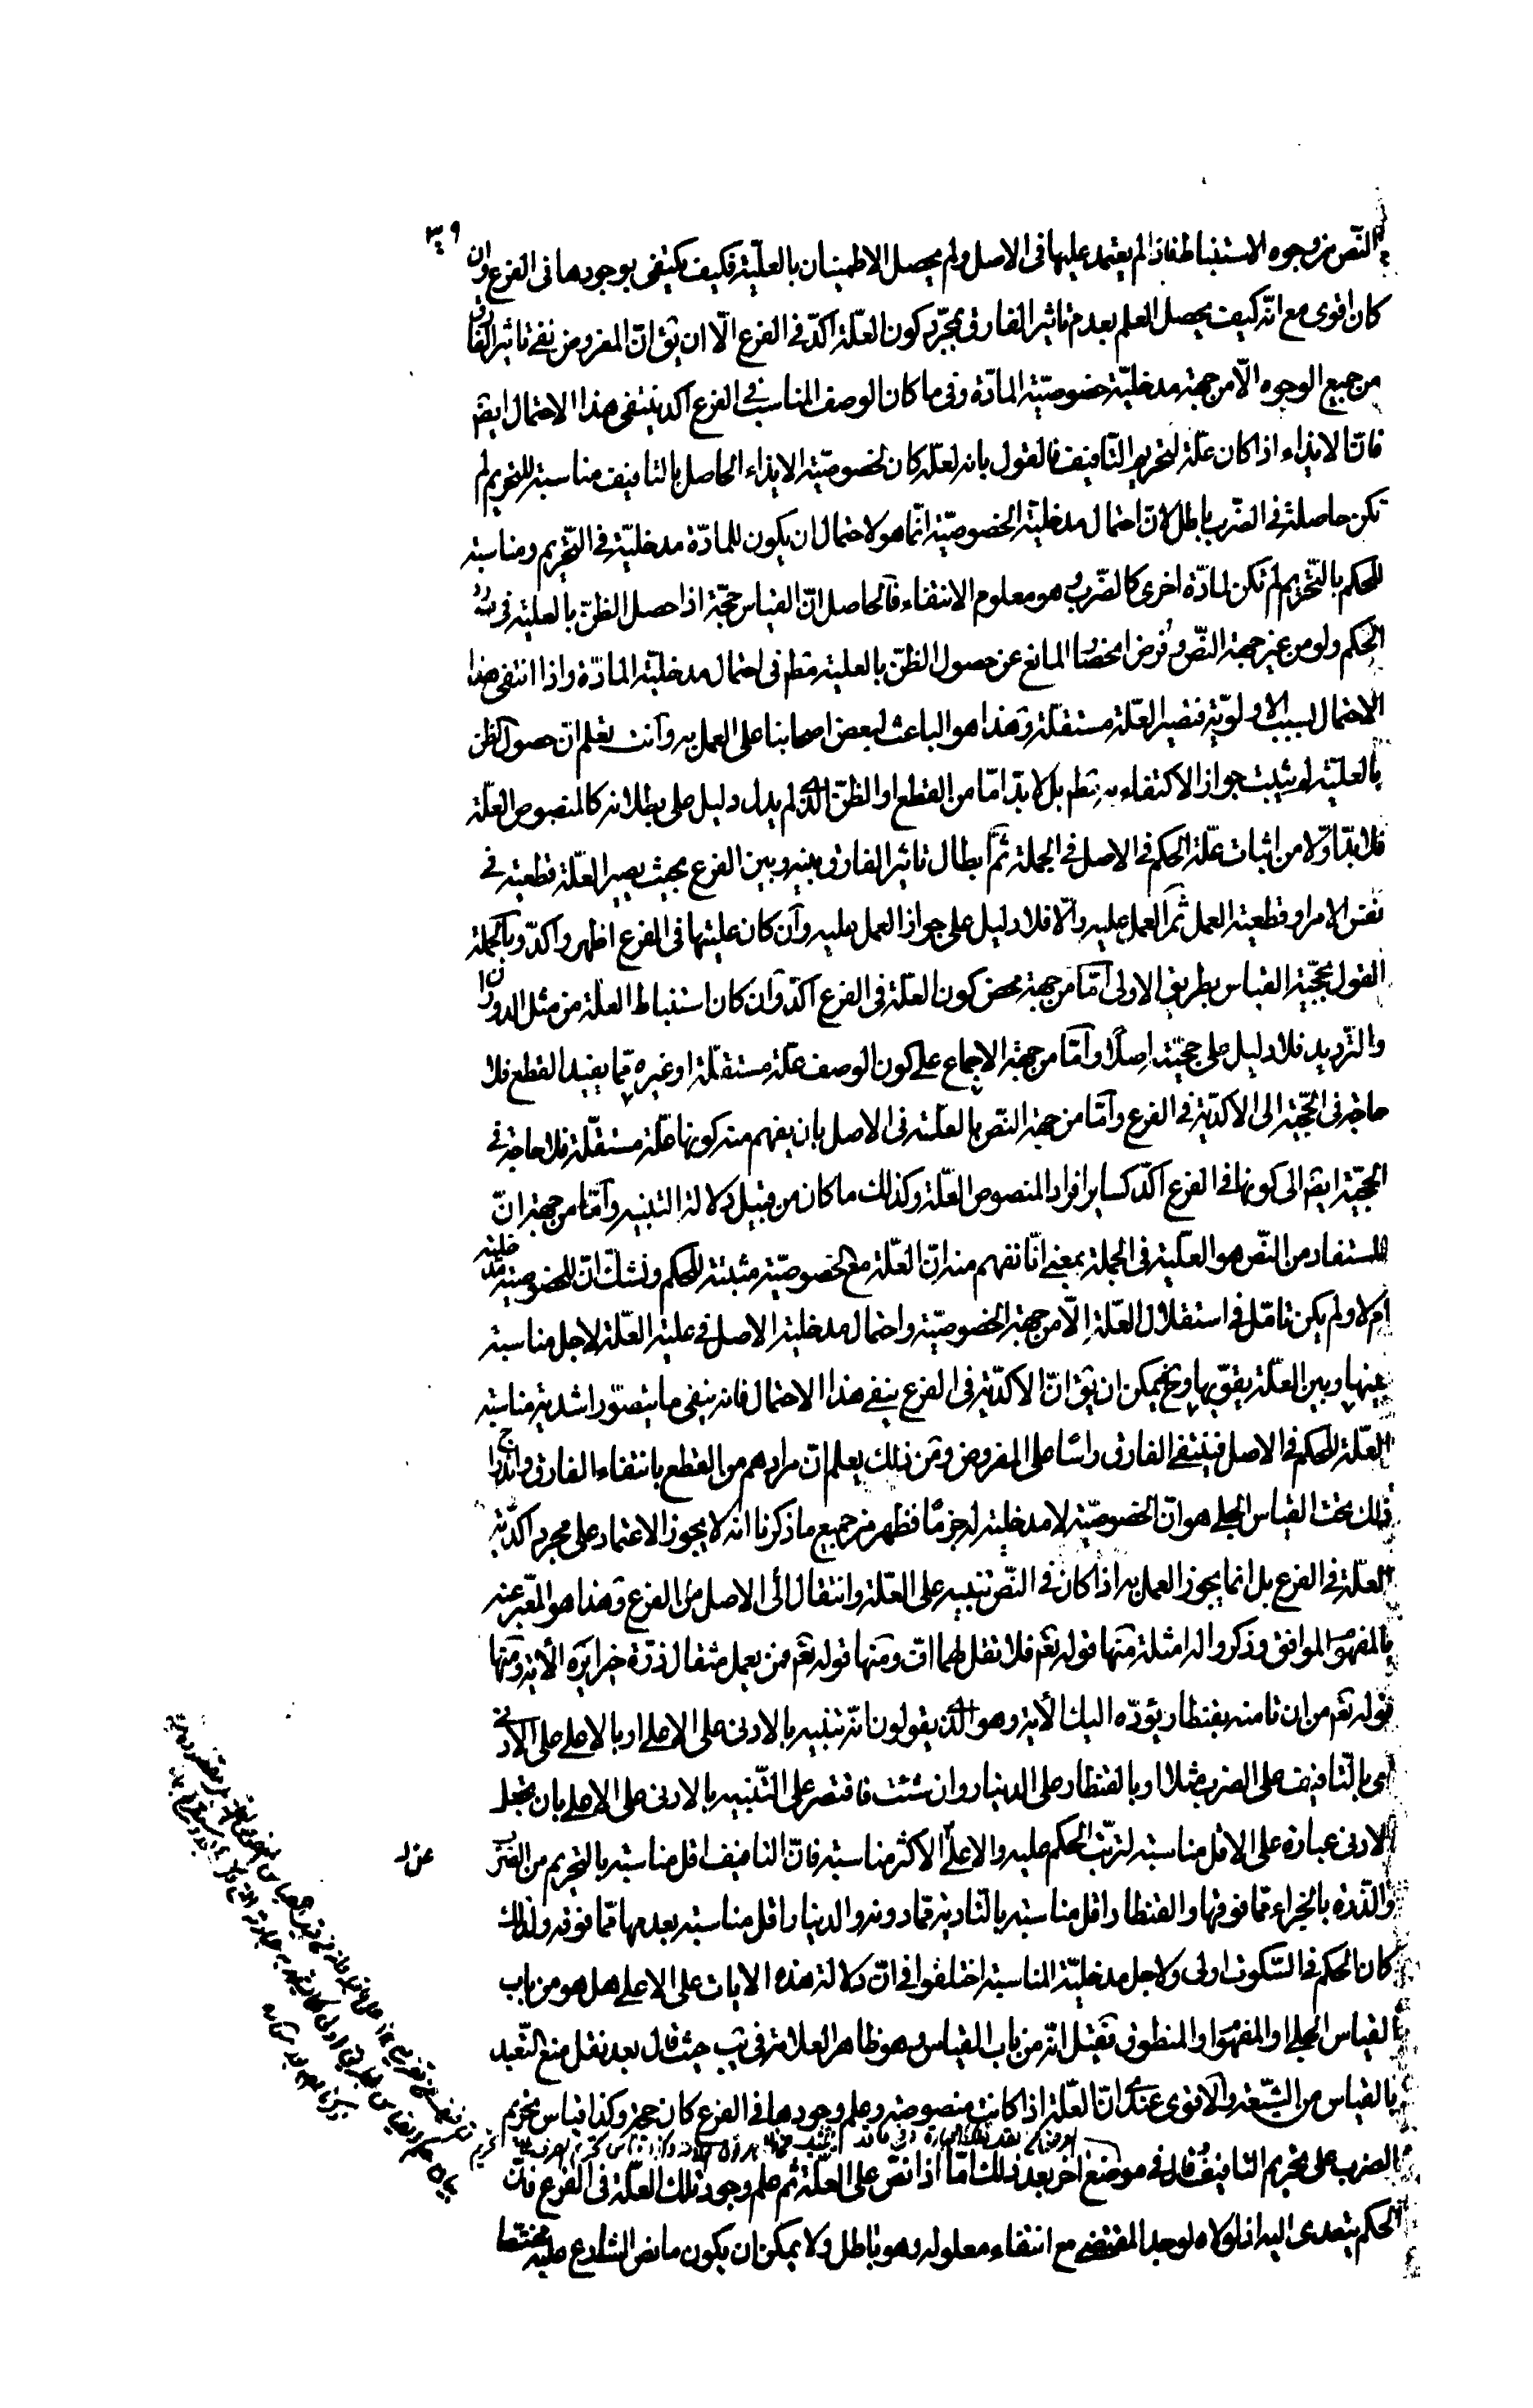 ٣٩
النّص من وجوه الاستنباط فاذا لم يعتمد عليها فى الاصل ولم يحصل الاطمينان بالعليّة فكيف يكتفى بوجودها فى الفرع وان
كان اقوى مع انّه كيف يحصل العلم بعدم تاثير الفارق بمجرّد كون العلّة آكد فى الفرع الّا ان يق انّ المفروض نفى تاثير الفارق
من جميع الوجوه الّا من جهة مدخليّة خصوصيّة المادّة وفى ما كان الوصف المناسب فى الفرع آكد ينتفى هذا الاحتمال ايضم
فان الايذاء اذا كان علّة لتحريم التافيف فالقول بانه لعلّه كان لخصوصيّة الايذاء الحاصل بالتافيف مناسبة للتحريم لم
تكن حاصلة فى الضّرب باطل لانّ احتمال مدخليّة الخصوصيّة انّما هو لاحتمال ان يكون للمادّة مدخليّة فى التّحريم ومناسبة
للحكم بالتّحريم لم تكن لمادّة اخرى كالضّرب وهو معلوم الانتفاء فالحاصل انّ القياس حجّة اذا حصل الظنّ بالعلية فى
الحكم ولو من غير جهة النصّ وفرض انحصار المانع عن حصول الظنّ بالعلية مطم فى احتمال مدخليّة المادّة واذا انتفى هذا
الاحتمال بسبب الاولويّة فتصير العلّة مستقلّة وهذا هو الباعث لبعض اصحابنا على العمل به وانت تعلم انّ حصول الظنّ
بالعليّة لم يثبت جواز الاكتفاء به مطم بل لا بدّ امّا من القطع او الظنّ الّذى لم يدل دليل على بطلانه كالمنصوص العلّة
فلا بدّ اوّلا من اثبات علّة الحكم فى الاصل فى الجملة ثمّ ابطال تاثير الفارق بينه وبين الفرع بحيث يصير العلّة قطعية فى
نفس الامر او قطعية العمل ثمّ العمل عليه والّا فلا دليل على جواز العمل عليه وان كان عليتها فى الفرع اظهر وآكد وبالجملة
القول بحجّية القياس بطريق الاولى امّا من جهة محض كون العلّة فى الفرع آكد وان كان استنباط العلّة من مثل الدوران
والتّرديد فلا دليل على حجّيته اصلا وامّا من جهة الاجماع على كون الوصف علّة مستقلّة او غيره ممّا يفيد القطع فلا
حاجة فى الحجّية الى الآكديّة فى الفرع وامّا من جهة النصّ بالعلّية فى الاصل بان يفهم منه كونها علّة مستقلّة فلا حاجة فى
الحجّية ايضم الى كونها فى الفرع آكد كساير افراد المنصوص العلّة وكذلك ما كان من قبيل دلالة التنبيه وامّا من جهة انّ
المستفاد من النّص هو العلّية فى الجملة بمعنى انّا نفهم منه انّ العلّة مع الخصوصيّة مثبتة للحكم ونشكّ انّ للخصوصية مدخلية
ام لا ولم يكن تامّل فى استقلال العلّة الّا من جهة الخصوصيّة واحتمال مدخلية الاصل فى علية العلّة لاجل مناسبة
بينها وبين العلّة يقوّيها وح يمكن ان يق انّ الآكديّة فى الفرع ينفى هذا الاحتمال فانه ينفى ما يتصوّر اشدية مناسبة
العلّة للحكم فى الاصل فينتفى الفارق راسا على المفروض ومن ذلك يعلم انّ مرادهم من القطع بانتفاء الفارق واندراج
ذلك تحت القياس الجلى هو انّ الخصوصيّة لا مدخلية له جزما فظهر من جميع ما ذكرنا انه لا يجوز الاعتماد على مجرد آكديّة
العلّة فى الفرع بل انما يجوز العمل به اذا كان فى النّص تنبيه على العلّة وانتقال الى الاصل من الفرع وهذا هو المعبّر عنه
بالمفهوم الموافق وذكروا له امثلة منها قوله تعم فلا تقل لهما افّ ومنها قوله تعم فمن يعمل مثقال ذرّة خيرا يره الآية ومنها
قوله تعم من ان تامنه بقنطار يؤدّه اليك الآية وهو الّذى يقولون انّه تنبيه بالادنى على الاعلى او بالاعلى على الادنى
اى بالتّافيف على الضرب مثلا او بالقنطار على الدينار وان شئت فاقتصر على التّنبيه بالادنى على الاعلى بان تجعل
الادنى عبارة على الاقل مناسبة لترتّب الحكم عليه والاعلى الاكثر مناسبة فانّ التافيف اقل مناسبة بالتحريم من الضرب
والذّرة بالجزاء ممّا فوقها والقنطار اقل مناسبة بالتادية ممّا دونه والدينار اقل مناسبة بعدمها ممّا فوقه ولذلك
كان الحكم فى السّكوت اولى ولاجل مدخليّة المناسبة اختلفوا فى انّ دلالة هذه الايات على الاعلى هل هو من باب
القياس الجلى او المفهوم او المنطوق فقيل انّه من باب القياس وهو ظاهر العلامة فى يب حيث قال بعد نقل منع التّعبد
بالقياس من الشّيعة والاقوى عندى انّ العلّة اذا كانت منصوصة وعلم وجودها فى الفرع كان حجة وكذا قياس تحريم
الضرب على تحريم التافيف وقال فى موضع اخر بعد ذلك امّا اذا نصّ على العلّة ثم علم وجود تلك العلّة فى الفرع فانّ
الحكم يتعدى اليه اذ لولاه لوجد المقتضى مع انتفاء معلوله وهو باطل ولا يمكن ان يكون ما نص الشارع عليه مختصّا